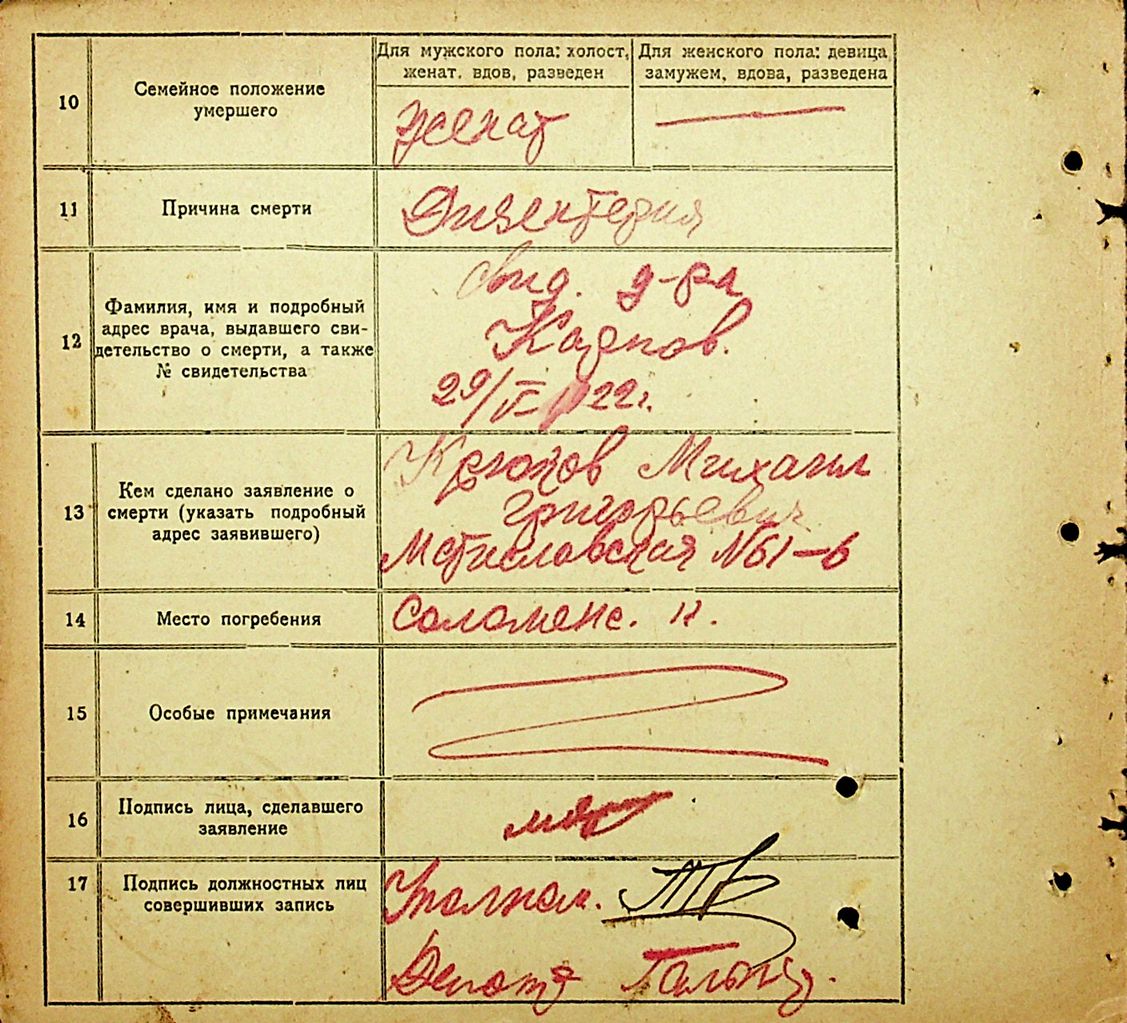 10
Семейное положение
умершего
Для мужского пола: холост,
женат, вдов, разведен
Для женского пола: девица
замужем, вдова, разведена
женат
11
Причина смерти
Дизентерия
12
Фамилия, имя и подробный
адрес врача, выдавшего сви-
детельство о смерти, а также
№ свидетельства
свид. д-ра
Карпов.
29/V 1922г.
13
Кем сделано заявление о
смерти (указать подробный
адрес заявившего)
Крюков Михаил
Григорьевич
Мстиславская №61-6
14
Место погребения
Соломенс. к.
15
Особые примечания
16
Подпись лица, сделавшего
заявление
17
Подпись должностных лиц
совершивших запись